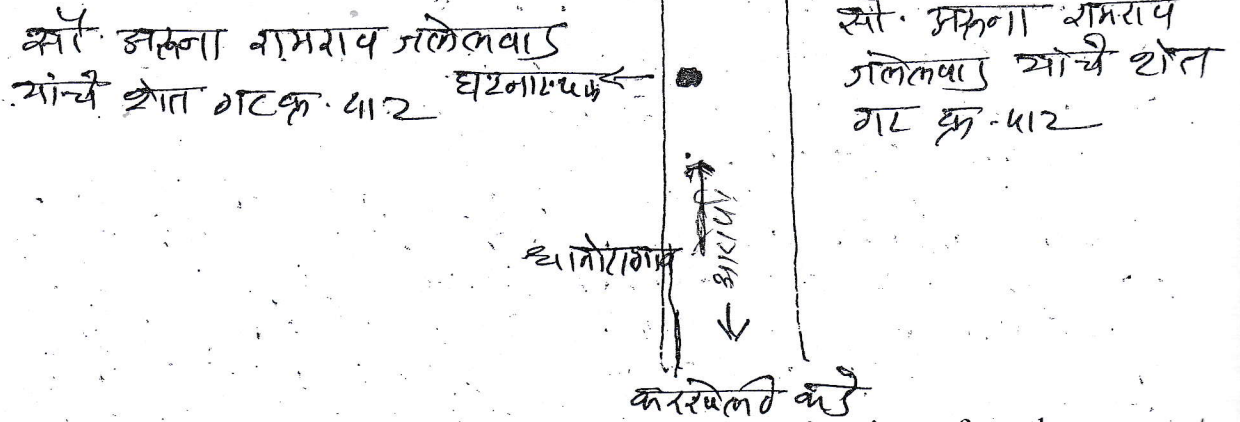 सौ. अरुना रामराव जलेलवाड
यांचे शेत गट क्र. ५१२
घटनास्थळ
सौ. अरुना रामराव
जलेलवाड यांचे शेत
गट क्र. ५१२
धानोरागाव
करखेली कडे